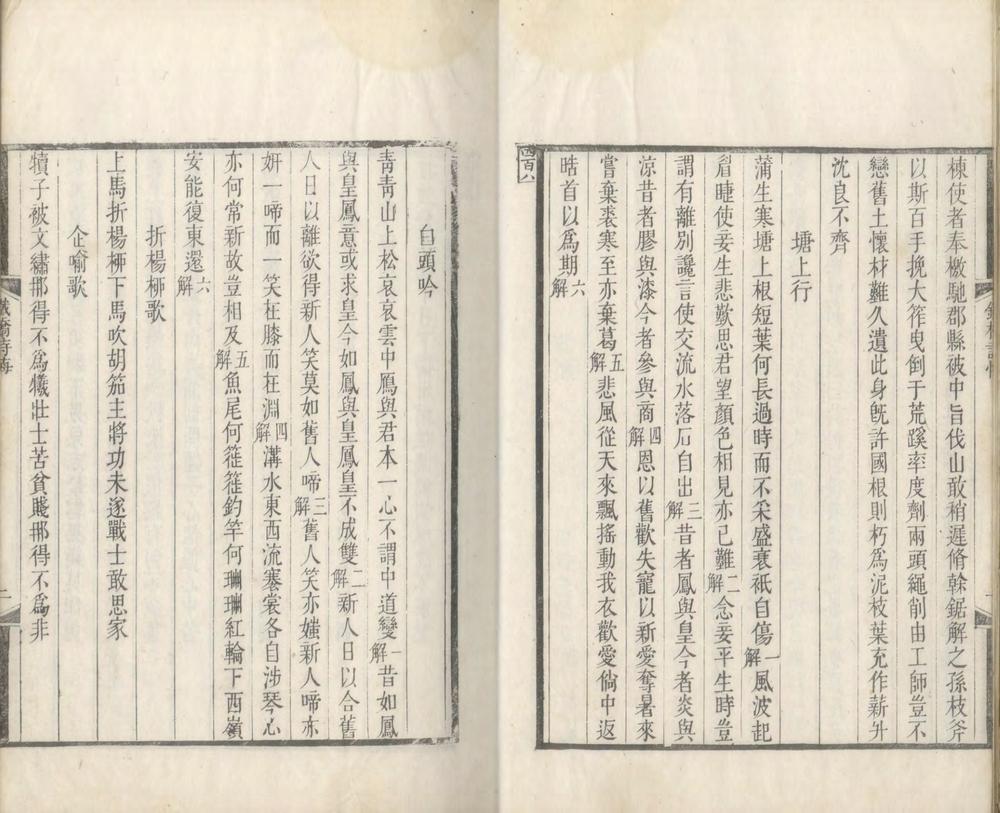 棟使者奉檄馳郡縣被中旨伐山敢稍遲脩榦鋸解之孫枝斧
以斯百手挽大筰曳倒于荒蹊率度劑兩頭繩削由工師豈不
戀舊土懷材難久遺此身旣許國根則朽爲泥枝葉充作薪升
沈良不齊
塘上行
蒲生寒塘上根短葉何長過時而不采盛衰祇自傷一解風波起
眉睫使妾生悲歎思君望顏色相見亦已難二解念妾平生時豈
謂有離別讒言使交流水落石自出三解昔者鳳與皇今者炎與
涼昔者膠與漆今者參與商四解恩以舊歡失寵以新愛奪暑來
嘗棄裘寒至亦棄葛五解悲風從天來飄搖動我衣歡愛倘中返
晧首以爲期六解
四百八
白頭吟
靑靑山上松哀哀雲中鴈與君本一心不謂中道變一解昔如鳳
與皇鳳意或求皇今如鳳與皇鳳皇不成雙二解新人日以合舊
人日以離欲得新人笑莫如舊人啼三解舊人笑亦媸新人啼亦
姸一啼而一笑在膝而在淵四解溝水東西流褰裳各自涉琴心
亦何常新故豈相及五解魚尾何簁簁釣竿何珊珊紅輪下西嶺
安能復東還六解
折楊桺歌
上馬折楊桺下馬吹胡笳主將功未遂戰士敢思家
企喻歌
犢子被文繡那得不爲犧壯士苦貧賤那得不爲非
二